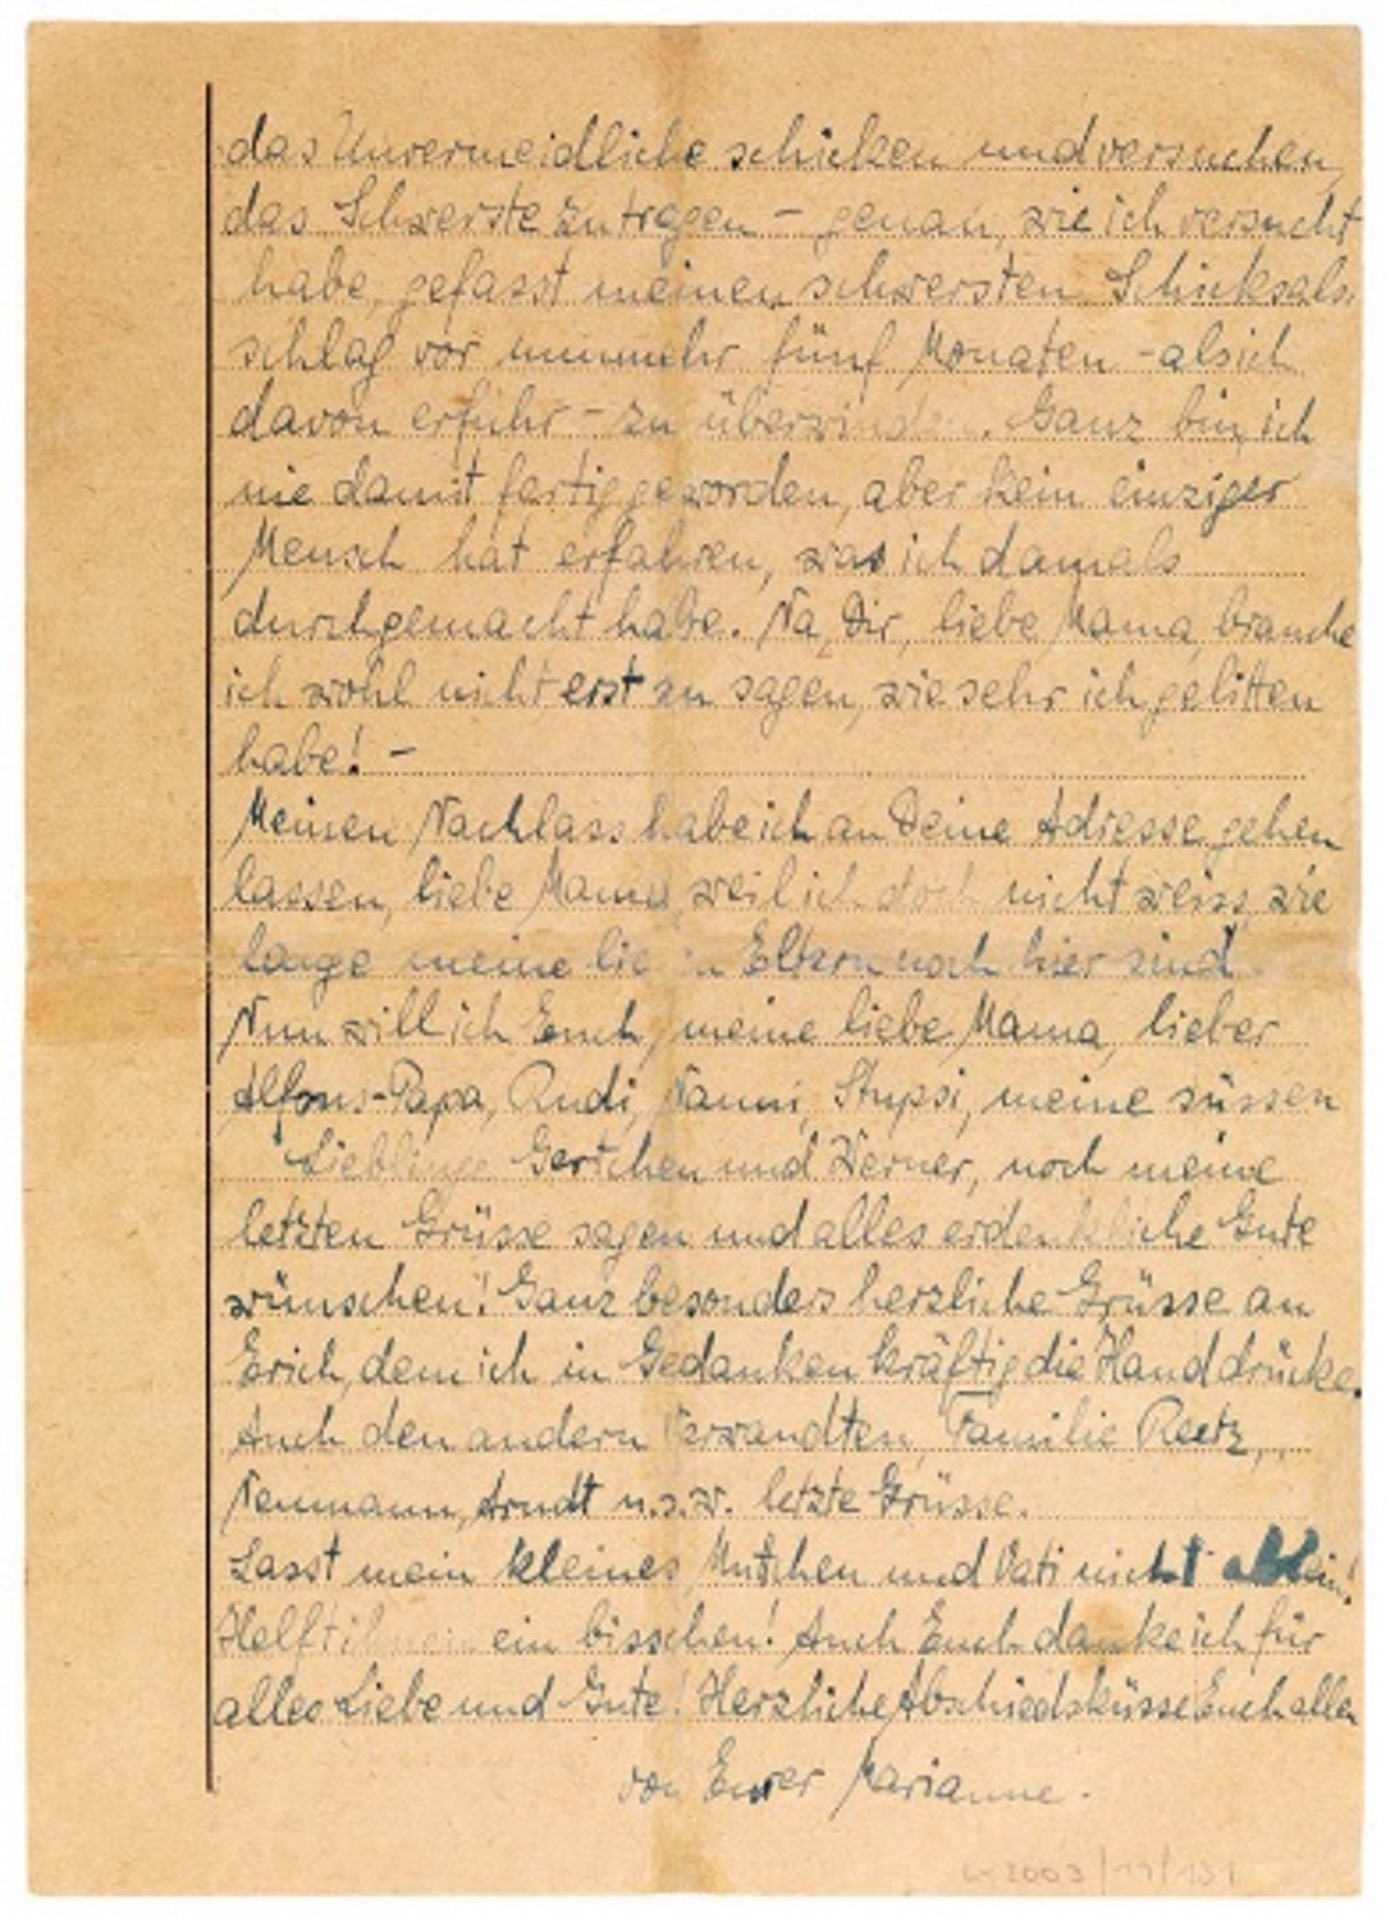 das Unvermeidliche schicken und versuchen,
das Schwerste zu tragen – genau, wie ich versucht
habe, gefasst meinen schwersten Schicksals-
schlag vor nunmehr fünf Monaten – als ich
davon erfuhr – zu überwinden. Ganz bin ich
nie damit fertig geworden, aber kein einziger
Mensch hat erfahren, was ich damals
durchgemacht habe. Na, Dir, liebe Mama, brauche
ich wohl nicht erst zu sagen, wie sehr ich gelitten
habe! –
Meinen Nachlass habe ich an Deine Adresse gehen
lassen, liebe Mama, weil ich doch nicht weiss, wie
lange meine lieben Eltern noch hier sind.
Nun will ich Euch, meine liebe Mama, lieber
Alfons-Papa, Rudi, Nanni, Stupsi, meine süssen
Lieblinge Gertchen und Werner, noch meine
letzten Grüsse sagen und alles erdenkliche Gute
wünschen! Ganz besonders herzliche Grüsse an
Erich, dem ich in Gedanken kräftig die Hand drücke.
Auch den andern Verwandten, Familie Reetz,
Neumann, Arndt u.s.w. letzte Grüsse.
Lasst mein kleines Muttchen und Vati nicht allein!
Helft ihnen ein bisschen! Auch Euch danke ich für
alles Liebe und Gute! Herzliche Abschiedsküsse Euch allen
von Eurer Marianne.